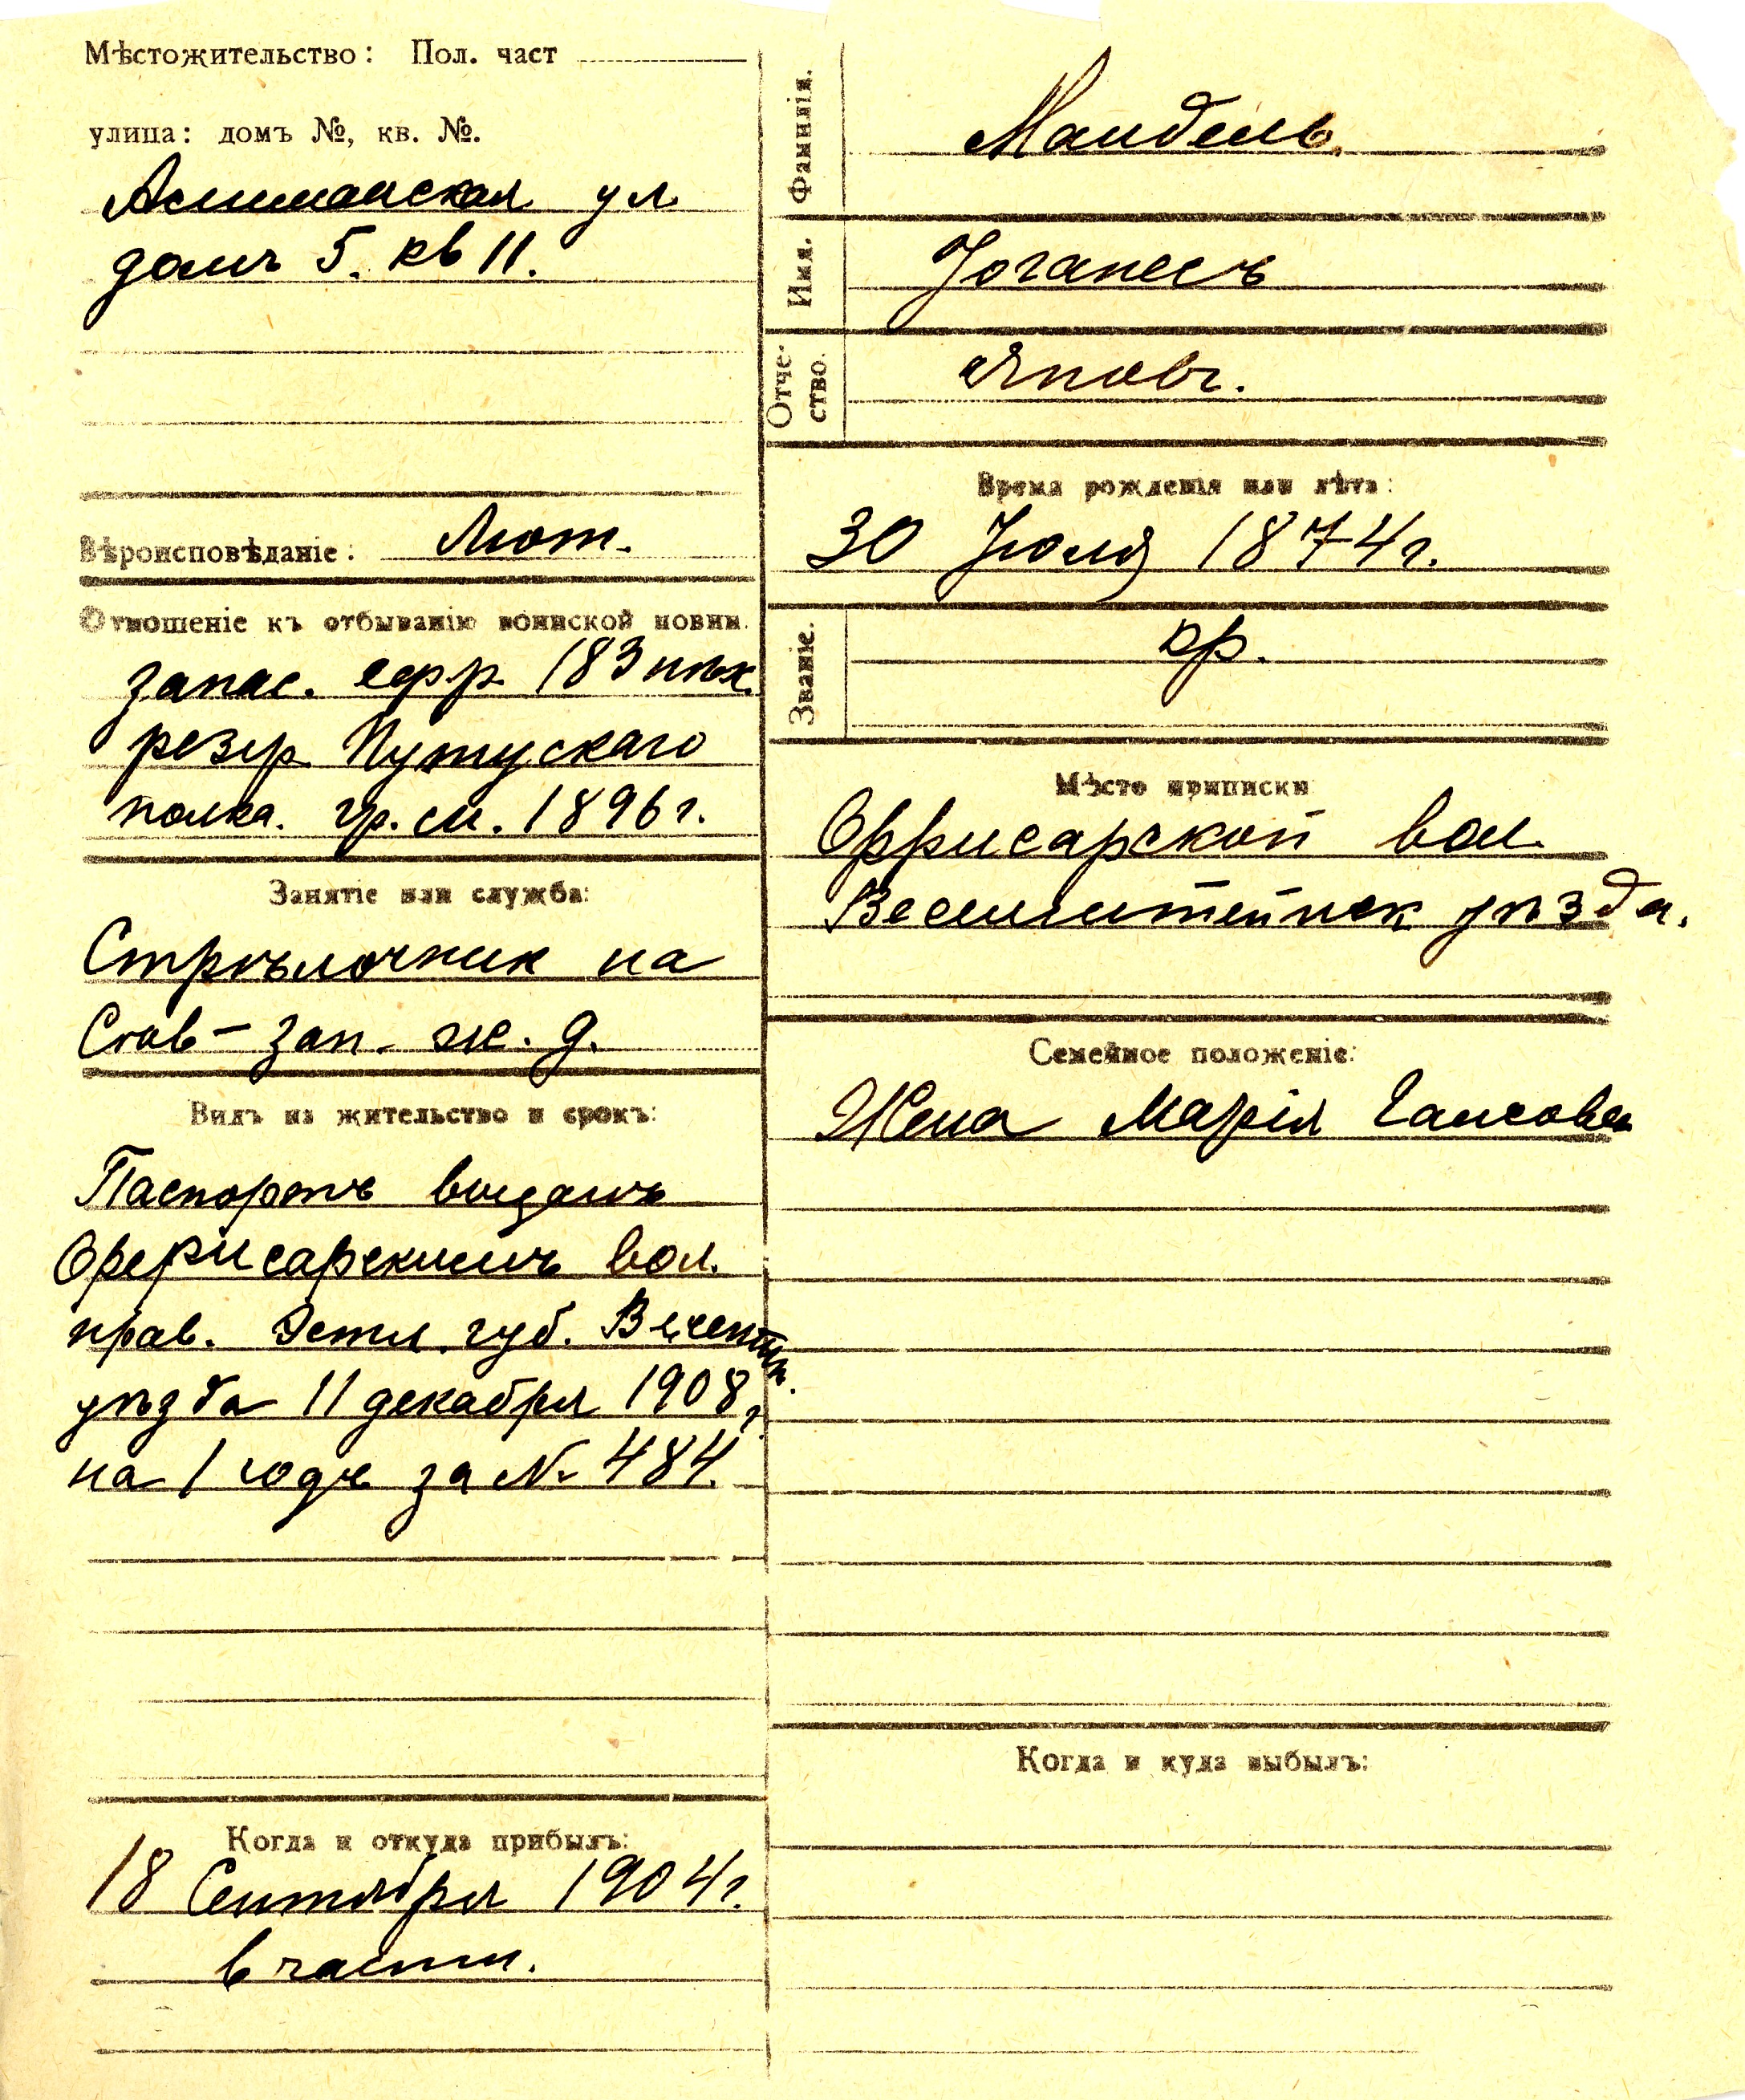 Мѣстожительство: Пол. част
улица: домъ №, кв. №.
ул
домъ 5. кв 11.
Вѣроисповѣданіе: Лют.
Отношеніе къ отбыванію воинской повин.
запас. ефр. 183 пѣх.
резер. Пултускаго
полка. ср. сл. 1896 г.
Занятіе или служба:
Стрѣлочник на
Сѣв-зап. ж. д.
Видъ на жительство и срокъ:
Паспортъ выданъ
Оррисарскимъ вол.
прав. Эстл. губ. Везент.
уѣзда 11 декабря 1908 г.
на 1 годъ за № 484.
Когда и откуда прибылъ:
18 Сентября 1904 г.
в части.
Фамилія. Мандель
Имя. Іоганесъ
Отче-
ство. Яновъ.
Время рожденія или лѣта:
30 Іюля 1874 г.
Званіе. кр.
Мѣсто приписки
Оррисарской вол.
уѣзда.
Семейное положеніе:
Жена Марія Гансова
Когда и куда выбылъ: